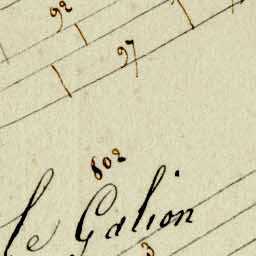 92
97
802
le Galion
3